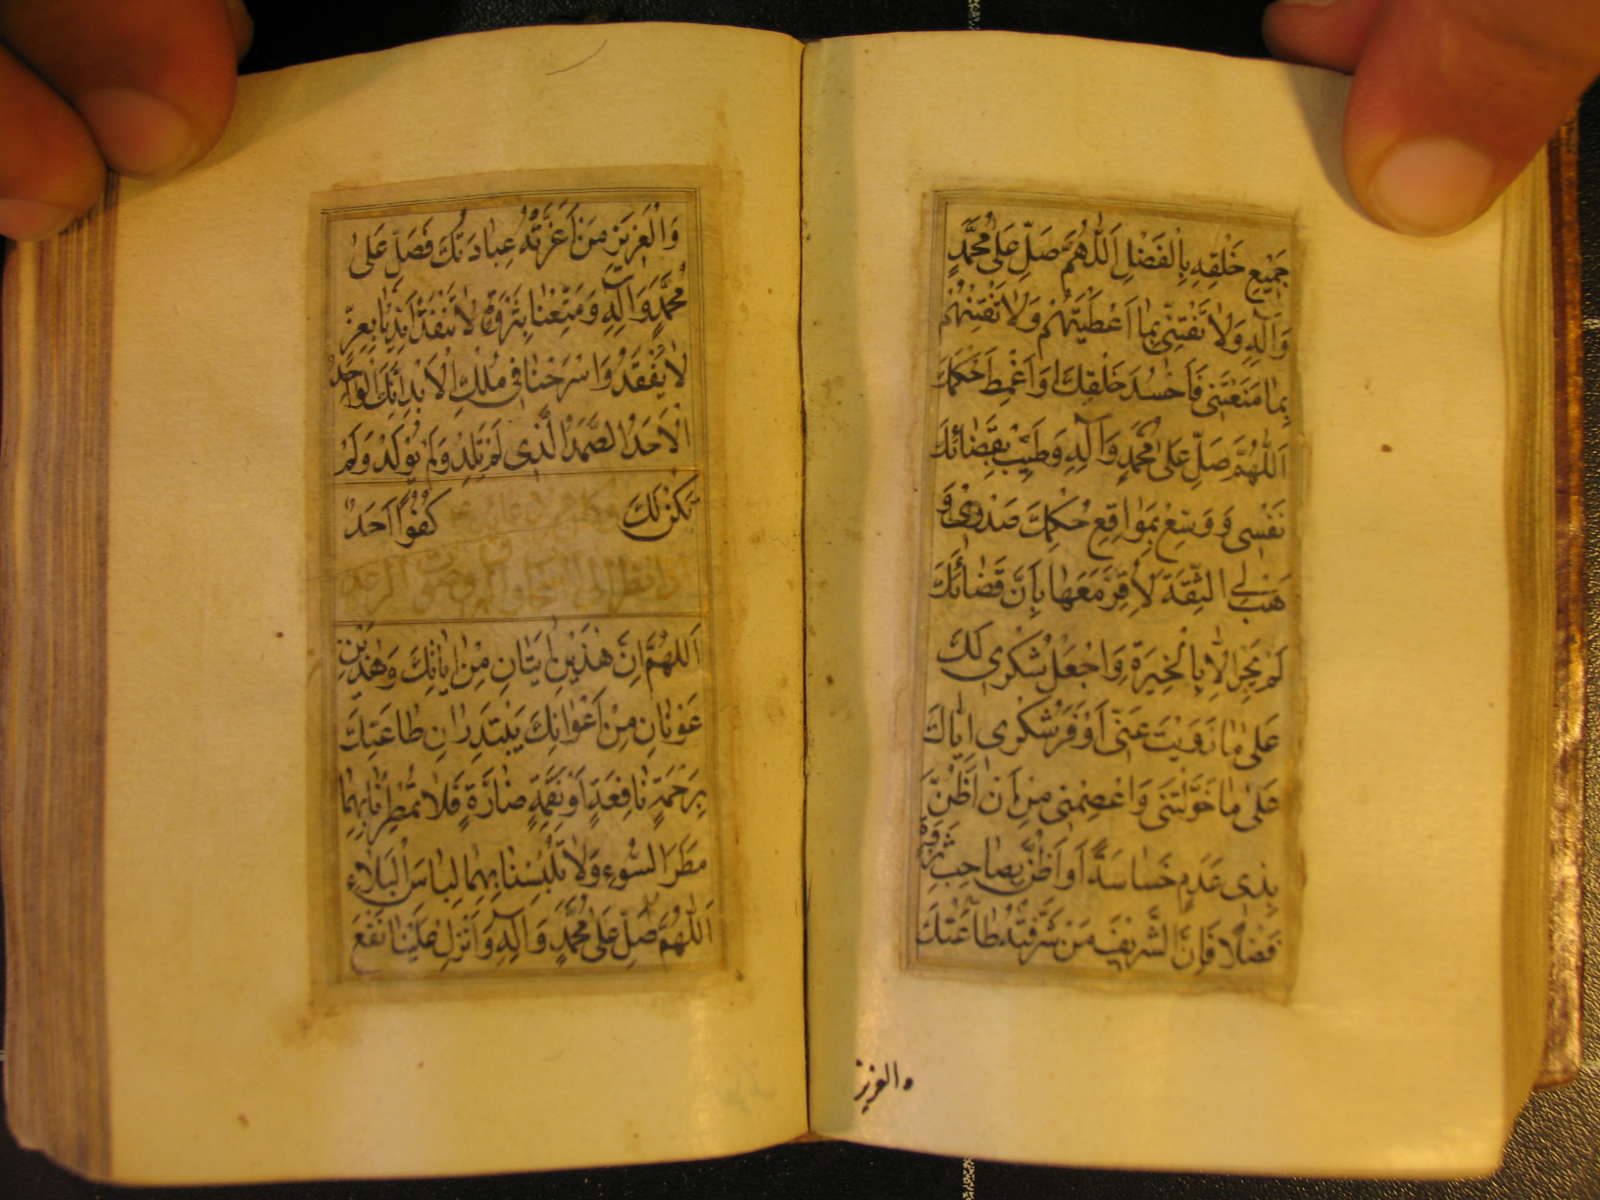 جَمِيعِ خَلْقِهِ بِالْفَضْلِ اَللّٰهُمَّ صَلِّ عَلٰى مُحَمَّدٍ
وَآلِهِ وَلَا تَفْتِنِّى بِمَا اَعْطَيْتَهُمْ وَلَا تَفْتِنْهُمْ
بِمَا مَنَعْتَنِى فَاَحْسُدَ خَلْقَكَ وَاَغْمِطَ حُكْمَكَ
اَللّٰهُمَّ صَلِّ عَلٰى مُحَمَّدٍ وَآلِهِ وَطَيِّبْ بِقَضَائِكَ
نَفْسِى وَوَسِّعْ بِمَوَاقِعِ حُكْمِكَ صَدْرِى وَ
هَبْ لِى الثِّقَةَ لِاُقِرَّ مَعَهَا بِاَنَّ قَضَائَكَ
لَمْ يَجْرِ اِلَّا بِالْخِيَرَةِ وَاجْعَلْ شُكْرِى لَكَ
عَلٰى مَا زَوَيْتَ عَنِّى اَوْفَرَ شُكْرِى اِيَّاكَ
عَلٰى مَا خَوَّلْتَنِى وَاعْصِمْنِى مِنْ اَنْ اَظُنَّ
بِذِى عَدَمٍ خَسَاسَةً اَوْ اَظُنَّ بِصَاحِبِ ثَرْوَةٍ
فَضْلًا فَاِنَّ الشَّرِيفَ مَنْ شَرَّفَتْهُ طَاعَتُكَ
والعزيز
وَالْعَزِيزَ مَنْ اَعَزَّتْهُ عِبَادَتُكَ فَصَلِّ عَلٰى
مُحَمَّدٍ وَآلِهِ وَمَتِّعْنَا بِثَرْوَةٍ لَا تَنْفَدُ اَيِّدْنَا بِعِزٍّ
لَا يُفْقَدُ وَاسْرَحْنَا فِى مُلْكِ الْاَبَدِ اِنَّكَ الْوَاحِدُ
الْاَحَدُ الصَّمَدُ الَّذِى لَمْ تَلِدْ وَلَمْ تُولَدْ وَلَمْ
يَكُنْ لَكَ كُفُوًا اَحَدٌ
اذا نظر الى السحاب والبرق وصوت الرعد
اَللّٰهُمَّ اِنَّ هٰذَيْنِ اٰيَتَانِ مِنْ اٰيَاتِكَ وَهٰذَيْنِ
عَوْنَانِ مِنْ اَعْوَانِكَ يَبْتَدِرَانِ طَاعَتَكَ
بِرَحْمَةٍ نَافِعَةٍ اَوْ نَقِمَةٍ ضَارَّةٍ فَلَا تُمْطِرْنَا بِهِمَا
مَطَرَ السَّوْءِ وَلَا تُلْبِسْنَا بِهِمَا لِبَاسَ الْبَلَاءِ
اَللّٰهُمَّ صَلِّ عَلٰى مُحَمَّدٍ وَآلِهِ وَاَنْزِلْ عَلَيْنَا نَفْعَ